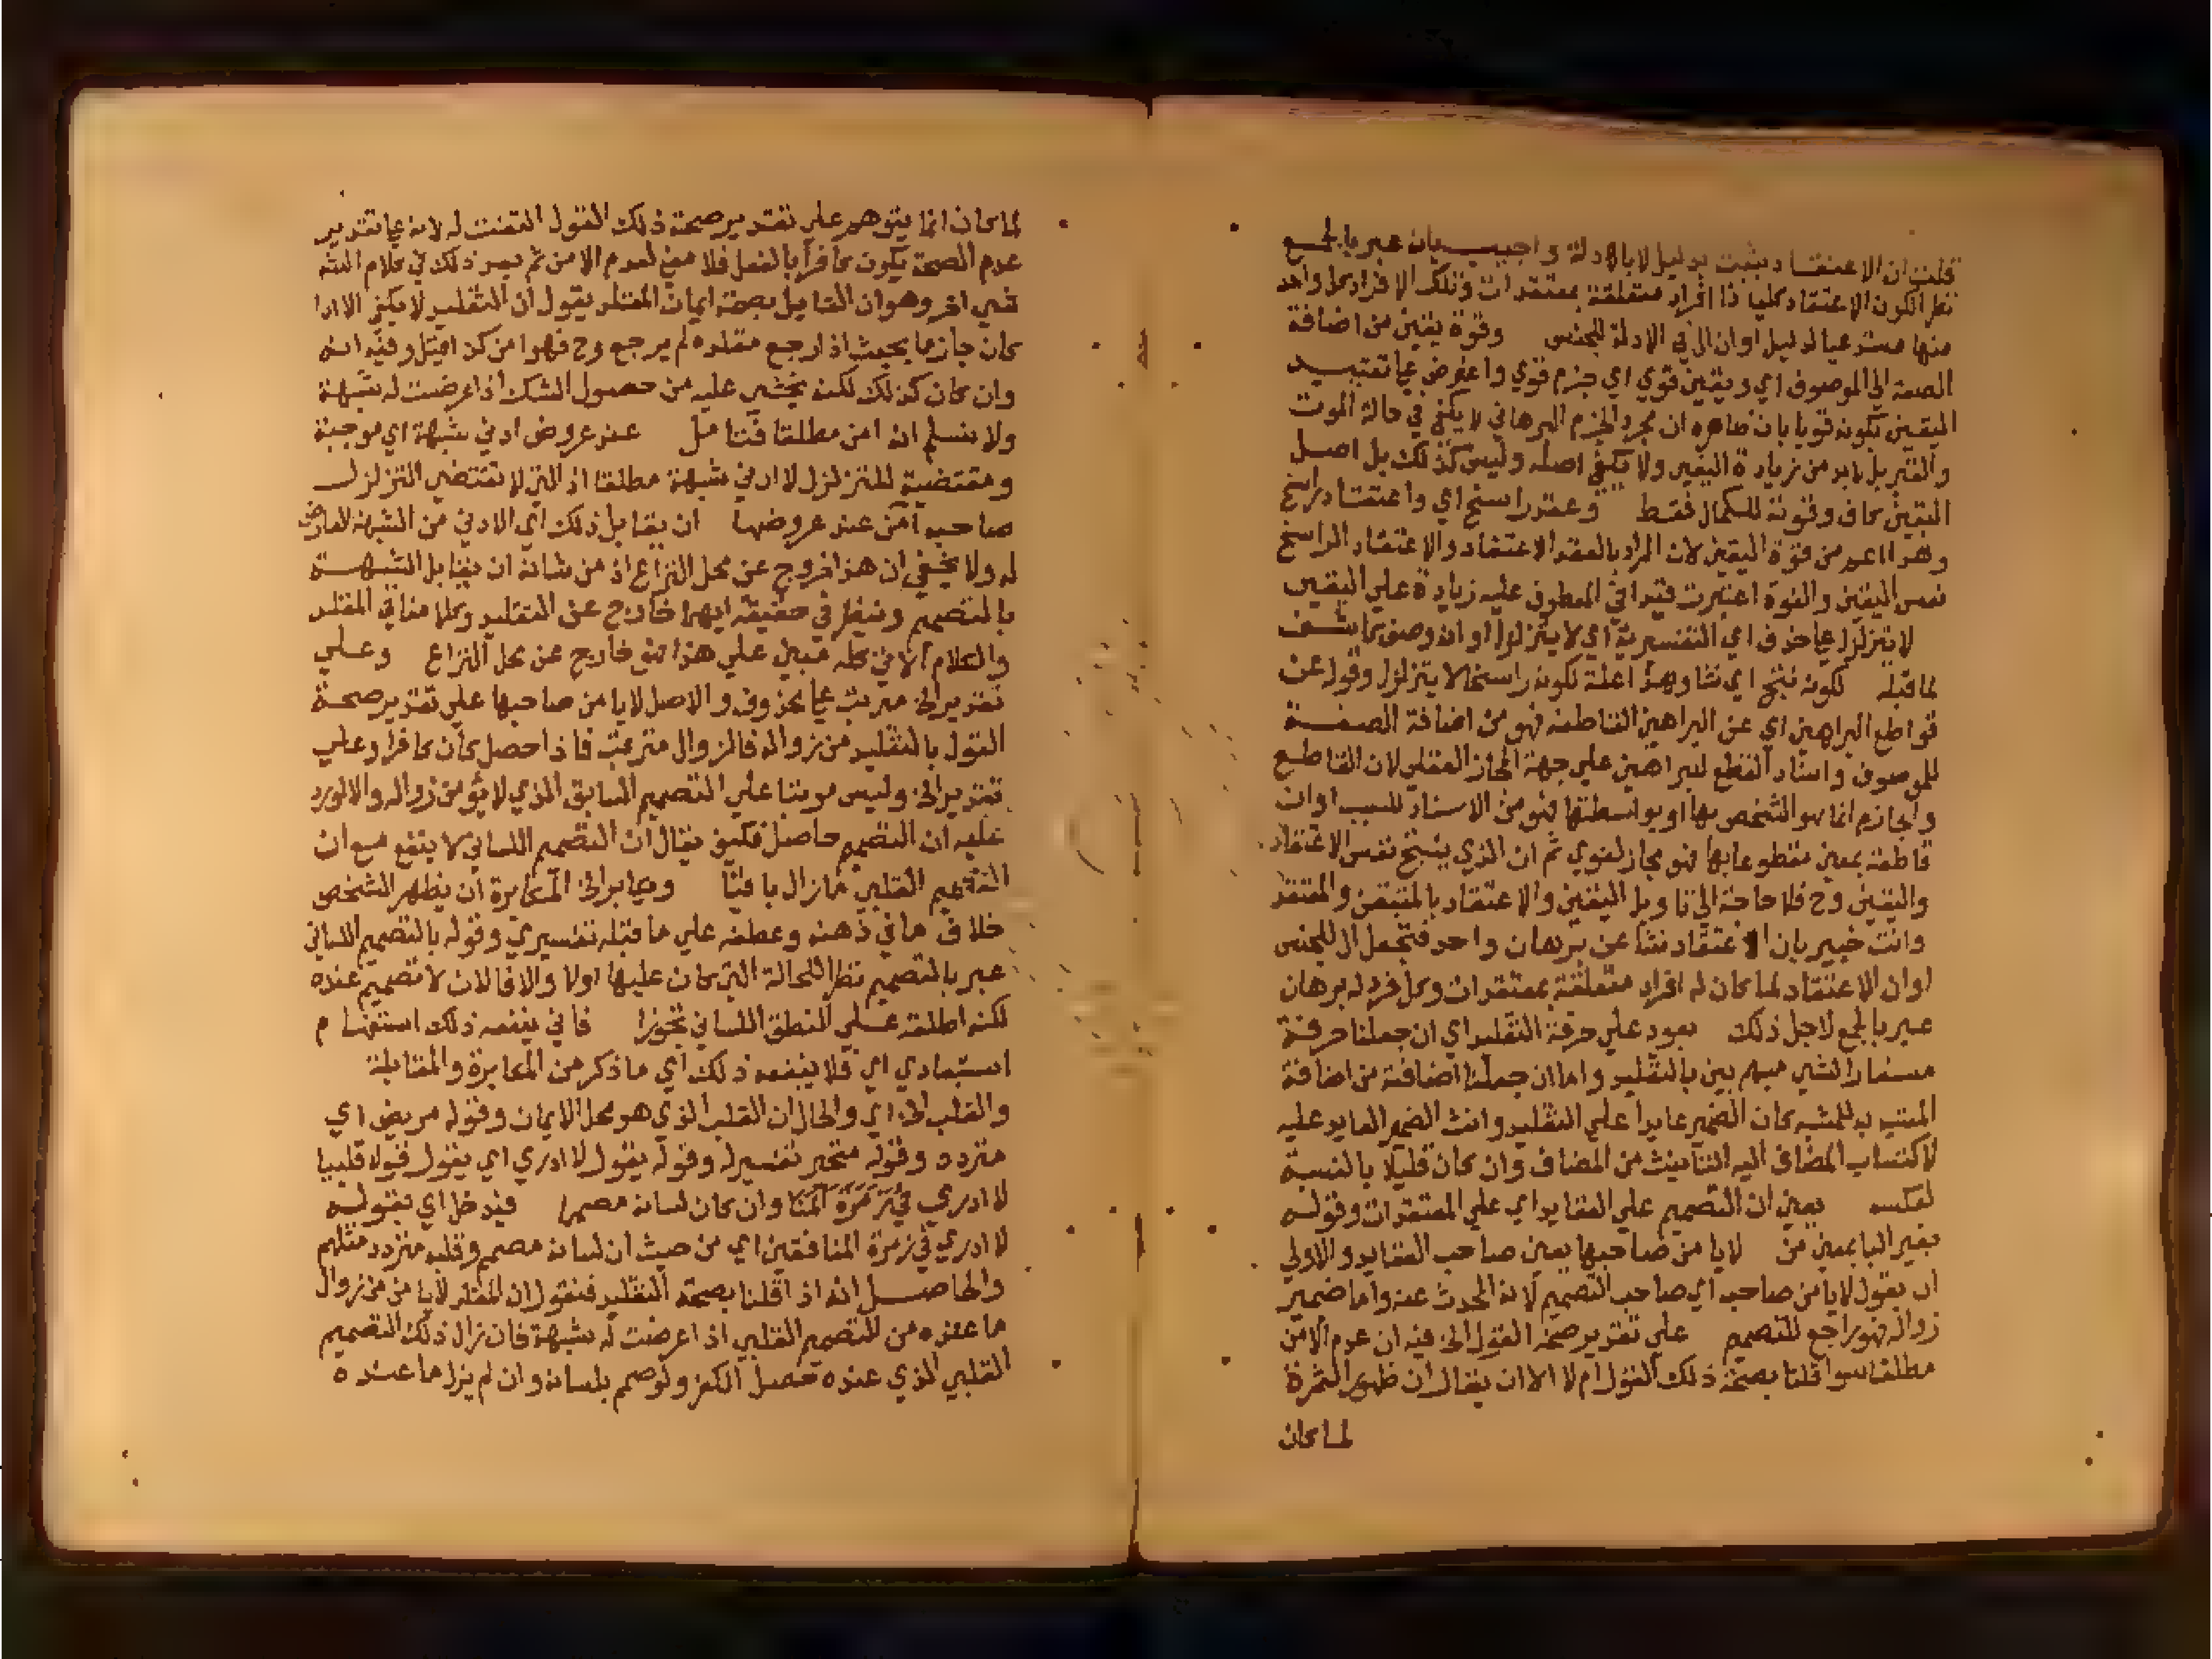 قلت ان الاعتقاد يثبت بدليل لا بالادلة واجيب بان عبر بالجمع
نظر الكون الاعتقاد كليا ذا افراد متعلقة بمعتقدات وتلك الافراد كل واحد
منها مستدعيا لدليل او ان ال في الادلة للجنس وقوة يقين من اضافة
الصفة الي الموصوف اي ويقين قوي اي جزم قوي واعترض علي تقييد
اليقين بكونه قويا بان ظاهره ان مجرد الجزم البرهاني لا يكفي في حالة الموت
والقبر بل لا بد من زيادة اليقين ولا يكفي اصله وليس كذلك بل اصل
اليقين كاف وقوته للكمال فقط وعقد راسخ اي واعتقاد راسخ
وهذا اعم من قوة اليقين لان المراد بالعقد الاعتقاد والاعتقاد الراسخ
نفس اليقين والقوة اعتبرت قيدا في المعطوف عليه زيادة علي اليقين
لا يتزلزل علي حذف اي التفسيرية اي لا يتزلزل او ان وصف كاشف
لما قبله لكونه نتج اي نشا وهذا علة لكونه راسخا لا يتزلزل وقوله عن
قواطع البراهين اي عن البراهين القاطعة فهو من اضافة الصفة
للموصوف واسناد القطع للبراهين علي جهة المجاز العقلي لان القاطع
والجازم انما هو الشخص بها او بواسطتها فهو من الاسناد للسبب او ان
قاطعة بمعني مقطوعا بها فهو مجاز لغوي ثم ان الذي ينتج نفس الاعتقاد
واليقين وح فلا حاجة الي تاويل اليقين والاعتقاد بالمتيقن والمعتقد
وانت خبير بان الاعتقاد نشا عن برهان واحد فتجعل ال للجنس
او ان الاعتقاد لما كان له افراد متعلقة بمعتقدات وكل فرد له برهان
عبر بالجمع لاجل ذلك يعود علي حرفة التقليد اي ان جعلنا حرفة
مستعارا لشي مبهم بين بالتقليد واما ان جعلنا اضافته من اضافة
المشبه به للمشبه كان الضمير عايدا علي التقليد وانث الضمير العايد عليه
لاكتساب المضاف اليه التانيث من المضاف وان كان قليلا بالنسبة
لعكسه يعني ان التصميم علي العقايد اي علي المعتقدات وقوله
بغير البا بمعني من لا يامن صاحبها يعني صاحب العقايد والاولي
ان يقول لا يامن صاحبه اي صاحب التصميم لانه المحدث عنه واما ضمير
زواله فهو راجع للتصميم علي تقدير صحة القول الخ فيه ان عدم الامن
مطلقا سوا قلنا بصحة ذلك القول ام لا الا ان يقال ان ظهور الثمرة
لما كان
لما كان انما يتوهم علي تقدير صحة ذلك القول التفت له لانه علي تقدير
عدم الصحة يكون كافرا بالفعل فلا معني لعدم الامن ثم بعد ذلك في كلام الشه
شي اخر وهو ان القايل بصحة ايمان المقلد يقول ان التقليد لا يكفي الا اذا
كان جازما بحيث اذا رجع مقلده لم يرجع وح فهو امن كذا قيل وفيه انه
وان كان كذلك لكنه يخشي عليه من حصول الشك اذا عرضت له شبهة
ولا نسلم انه امن مطلقا فتامل عند عروض ادني شبهة اي موجبة
ومقتضية للتزلزل لا ادني شبهة مطلقا اذ التي لا تقتضي التزلزل
صاحبه امن عند عروضها ان يقابل ذلك اي الادني من الشبهة العارض
له ولا يخفي ان هذا خروج عن محل النزاع اذ من شانه ان يقابل الشبهة
بالتصميم وينظر في حقيقة ايهما خارج عن التقليد وكلامنا في المقلد
والكلام الاتي كله مبني علي هذا فهو خارج عن محل النزاع وعلي
تقدير الخ مرتب علي محذوف والاصل لا يامن صاحبها علي تقدير صحة
القول بالتقليد من زواله فالزوال مترتب فاذا حصل كان كافرا وعلي
تقدير الخ وليس مرتبا علي التصميم السابق الذي لا يؤمن زواله والا لورد
عليه ان التصميم حاصل فكيف يقال ان التصميم اللساني لا ينفع مع ان
التصميم القلبي ما زال باقيا ويكابر الخ المكابرة ان يظهر الشخص
خلاف ما في ذهنه وعطفه علي ما قبله تفسيري وقوله بالتصميم اللساني
عبر بالتصميم نظرا للحالة التي كان عليها اولا والا فالان لا تصميم عنده
لكنه اطلقه علي النطق اللساني تجوزا فاني ينفعه ذلك استفهام
استبعادي اي فلا ينفعه ذلك اي ما ذكر من المكابرة والمقابلة
والقلب الخ اي والحال ان القلب الذي هو محل الايمان وقوله مريض اي
متردد وقوله متحير تفسير له وقوله يقول لا ادري اي يقول قولا قلبيا
لا ادري في وان كان لسانه مصمما فيدخل اي بقوله
لا ادري في زمرة المنافقين اي من حيث ان لسانه مصمم وقلبه متردد مثلهم
والحاصل انه اذا قلنا بصحة التقليد فنقول ان المقلد لا يامن من زوال
ما عنده من التصميم القلبي اذا عرضت له شبهة فان زال ذلك التصميم
القلبي الذي عنده حصل الكفر ولو صمم بلسانه وان لم يزل ما عنده